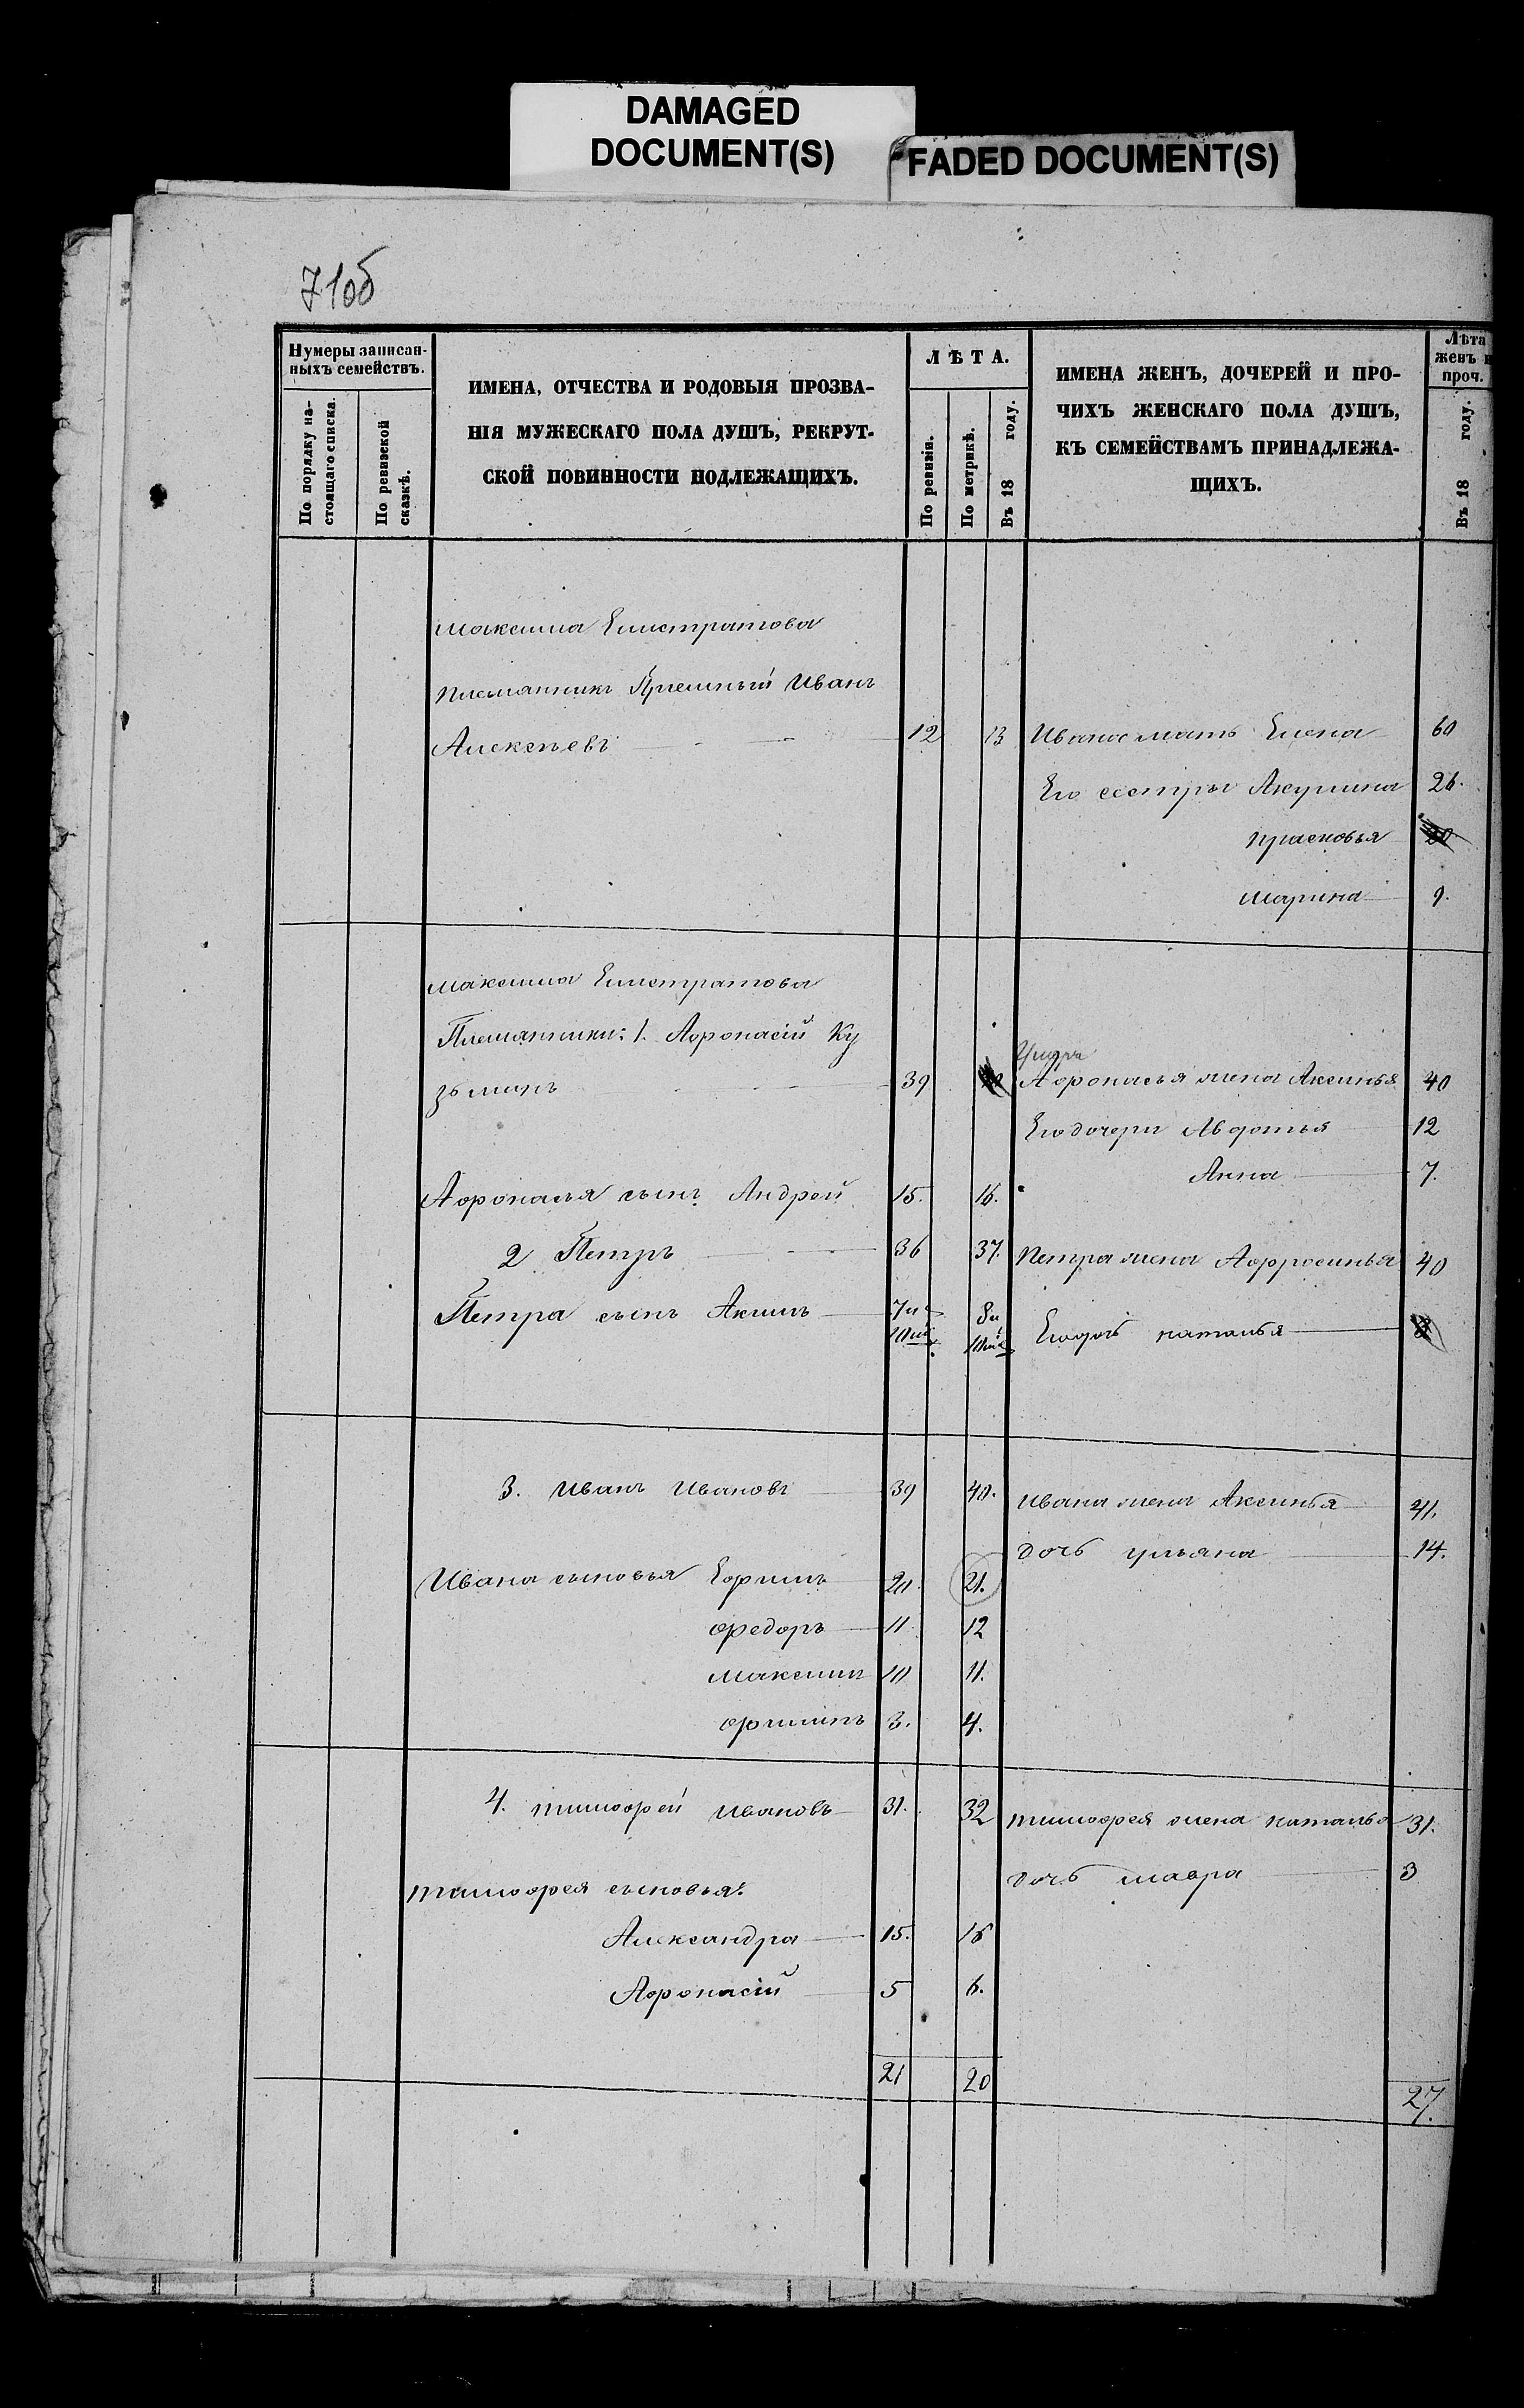 DAMAGED
DOCUMENT(S)
FADED DOCUMENT(S)
71об
Нумеры записан-
ныхъ семействъ.
По порядку на-
стоящаго списка.
По ревизской
сказкѣ.
ИМЕНА, ОТЧЕСТВА И РОДОВЫЯ ПРОЗВА-
НІЯ МУЖЕСКАГО ПОЛА ДУШЪ, РЕКРУТ-
СКОЙ ПОВИННОСТИ ПОДЛЕЖАЩИХЪ.
ЛѢТА.
По ревизіи.
По метрикѣ.
Въ 18 году.
ИМЕНА ЖЕНЪ, ДОЧЕРЕЙ И ПРО-
ЧИХЪ ЖЕНСКАГО ПОЛА ДУШЪ,
КЪ СЕМЕЙСТВАМЪ ПРИНАДЛЕЖА-
ЩИХЪ.
Лѣта
женъ и
проч.
Въ 18 году.
Максима Елистратова
племянникъ Приемный Иванъ
Алексеевъ 12 13 Ивана мать Елена 60
Его сестры Акулина 26.
прасковья
марина 9.
максима Елистратова
Племянники: 1. Афонасій Ку
зьминъ 39 Афонасья жена Аксинья 40
Его дочери Авдотья 12
Анна 7.
Афонасья сынъ Андрей 15. 16.
2 Петръ 36 37. Петра жена Аофросинья 40
Петра сынъ Акимъ 7и 8и
Его дочь наталья
3. Иванъ Ивановъ 39 40. Ивана жена Аксинья 41.
дочь ульяна 14.
Ивана сыновья Ефимъ 20 21.
федоръ 11 12
Максимъ 10 11.
филипъ 3. 4.
4. тимофей Ивановъ 31. 32 тимофея жена наталья 31.
дочь мавра 3
тимофея сыновья:
Александра 15. 16
Афонасій 5 6.
21 20 27.